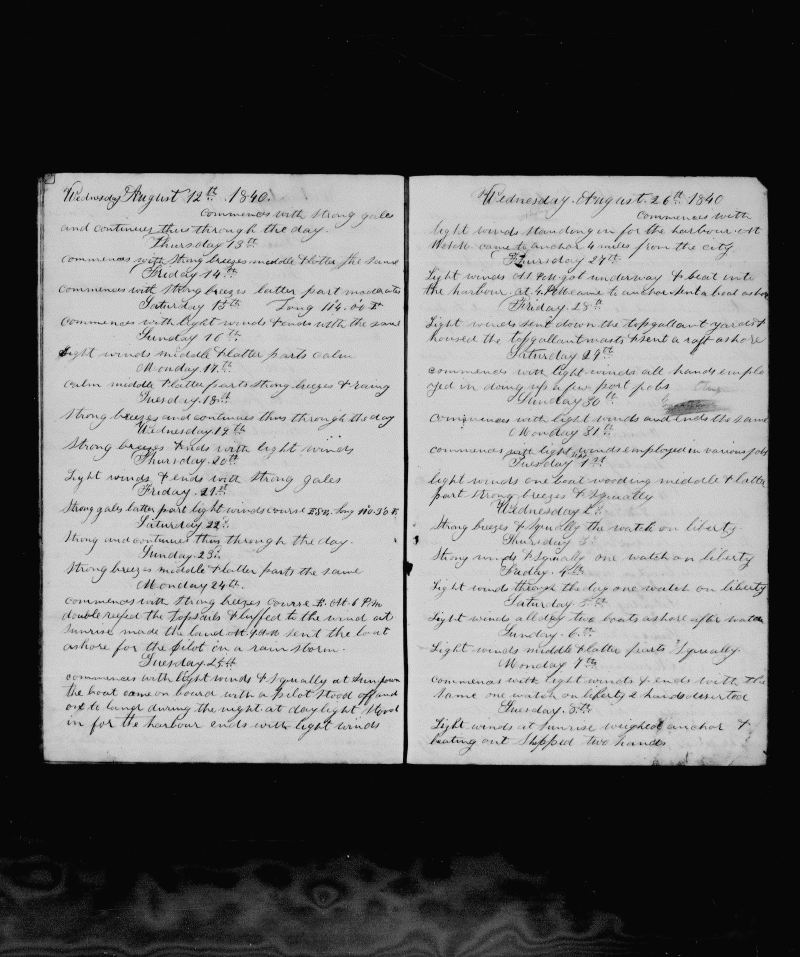 Wednesday August 12th 1840.
Commences with strong gales
and continues thus through the day.
Thursday 13th
commences with strong breezes middle & latter the same
Friday 14th
commences with strong breezes latter part moderates
Saturday 15th Long 114.00 E
commences with light winds & ends with the same
Sunday 16th
Light winds middle & latter parts calm
Monday 17th
calm middle & latter parts strong breezes & raing
Tuesday 18th
Strong breezes and continues thus through the day
Wednesday 19th
Strong breezes & ends with light winds
Thursday 20th
Light winds & ends with strong gales
Friday 21st
Strong gales latter part light winds course ESE. Long
Saturday 22
Strong and continues thus through the day.
Sunday 23
Strong breezes middle & latter parts the same
Monday 24th.
commences with strong breezes course E. At 6 P.M
double reefed the topsails & luffed to the wind at
sunrise made the land At 9 AM sent the boat
ashore for the pilot on a rain storm.
Tuesday 25th
commences with light winds & squally at sundown
the boat came on board with a pilot stood off and
on & to langr during the night at daylight stood
in for the harbour ends with light winds
Wednesday August 26th 1840
Commences with
light winds standing in for the harbour At
came to anchor 4 miles from the city
Thursday 27th
Light winds At PM got underway & beat into
the harbour at 4 PM came to anchor sent a boat ashore
Friday 28th
Light winds sent down the topgallant yards &
housed the topgallant masts & sent a raft ashore
Saturday 29th
commences with light winds all hands emplo
yed in doing up a few port jobs
Sunday 30th
commences with light winds and ends the same
Monday 31st
commences with light winds employed in various jobs
Tuesday Sept 1st
light winds one boat wooding middle & latter
part strong breezes & squally
Wednesday 2
Strong breezes & squally the watch on liberty
Thursday 3
Strong winds & squally one watch on liberty
Friday 4th
Light winds through the day one watch on liberty
Saturday 5th
Light winds all day two boats ashore after water
Sunday 6th
Light winds middle & latter parts squally.
Monday 7th
commences with light winds & ends with the
same one watch on liberty 2 hands deserted
Tuesday 8th
Light winds at sunrise weighed anchor &
beating out shipped two hands